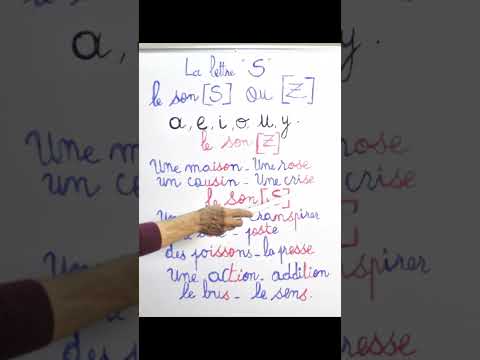 La lettre "S"
le son [S] ou [Z]
a, e, i, o, u, y.
le son [Z]
Une maison - Une rose
un cousin - Une crise
le son [S]
transpirer
- poste
des poissons - la presse
Une action - addition
le bus - le sens.